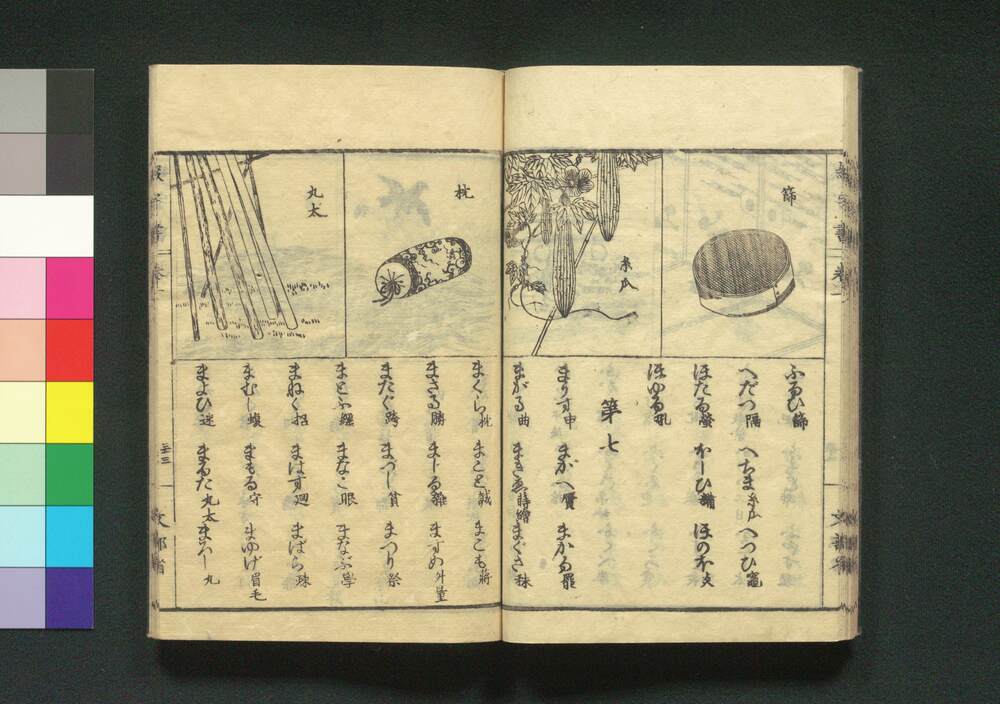 篩
糸瓜
ふるひ篩
へだつ隔 へちま糸瓜 へつひ竈
ほたる螢 ほしひ糒 ほのほ炎
ほゆる吼
第七
まうす申 まがへ贋 まかる罷
まがる曲 まきゑ蒔繪 まぐさ秣
枕
丸太
まくら枕 まこと誠 まこも蔣
まさる勝 まじる雜 ますめ外量
またぐ跨 まづし貧 まつり祭
まとふ纒 まなこ眼 まなぶ學
まねく招 まはす廻 まばら疎
まむし蝮 まもる守 まゆげ眉毛
まよひ迷 まるた丸太 まろし丸
文部省